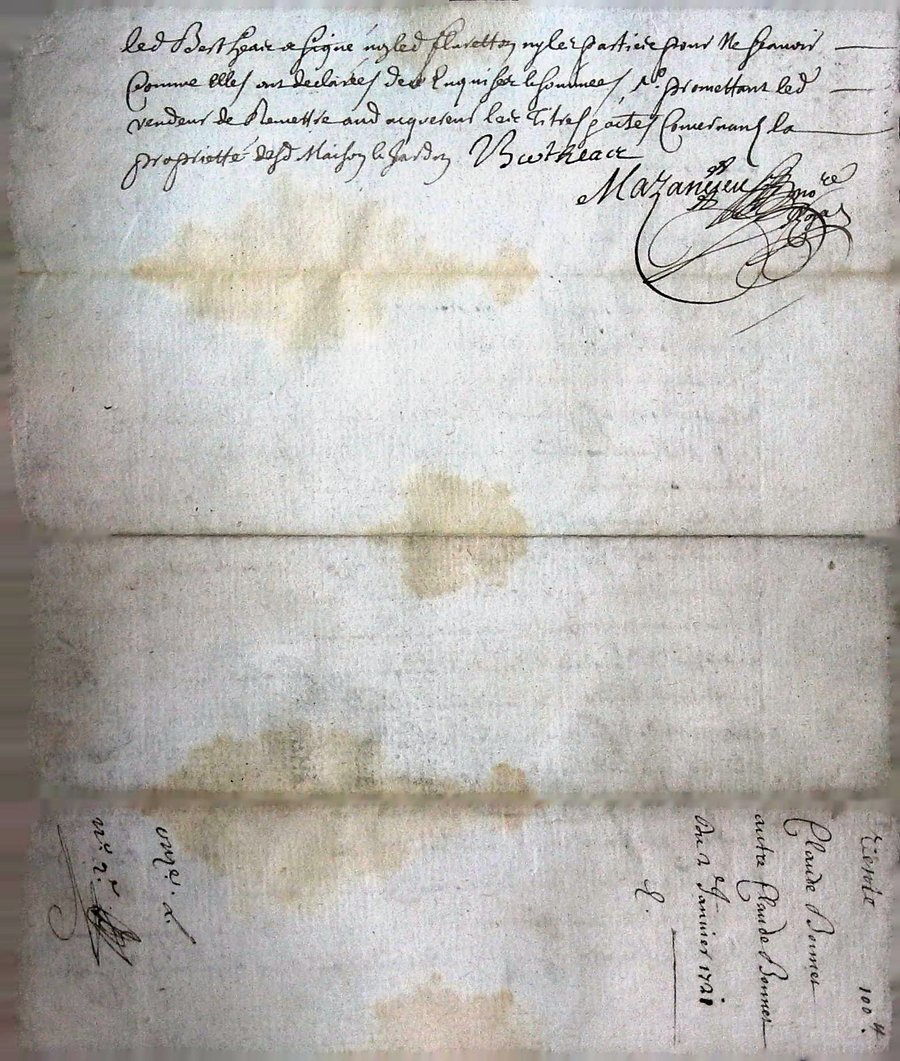 led Bertheac a signé non led fluretton ny les parties pour ne scavoir
comme elles ont declarées de ce enquises & sommées promettant led
vendeur de Remettre aud acquereur les Titres & actes Concernant la
proprietté desd Maison & Jardin Bertheac
Mazancieu no.re
Claude Bonnet
autre Claude Bonnet
du 2 Janvier 1721
100 ₶.
n.° 2